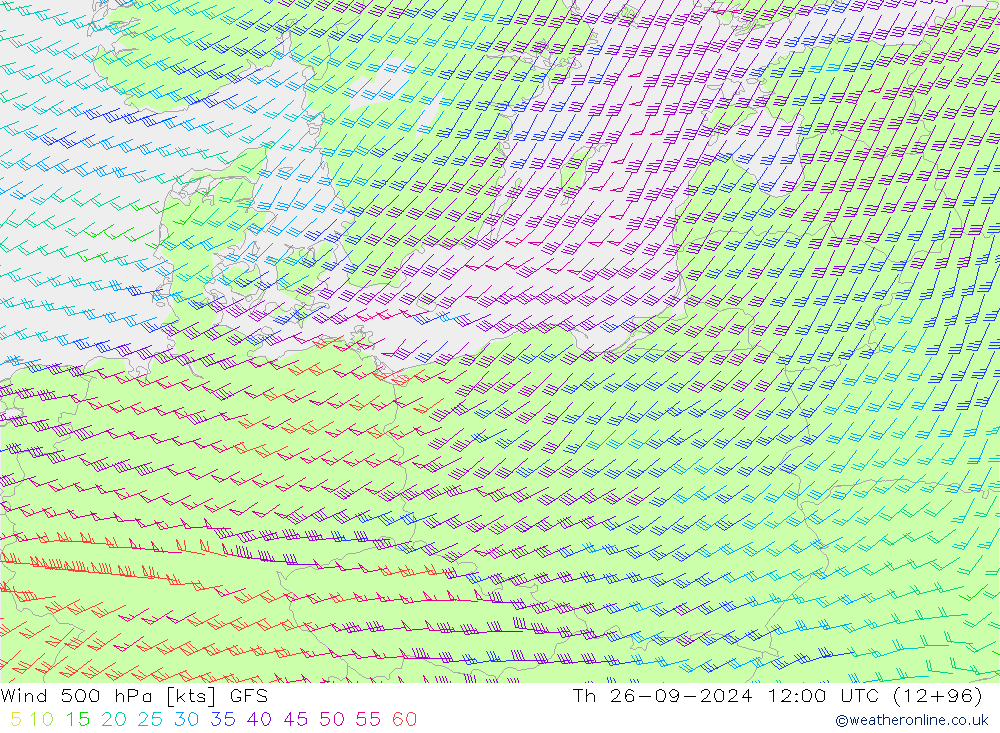 Wind 500 hPa [kts] GFS Th 26-09-2024 12:00 UTC (12+96)
5 10 15 20 25 30 35 40 45 50 55 60 ©weatheronline.co.uk